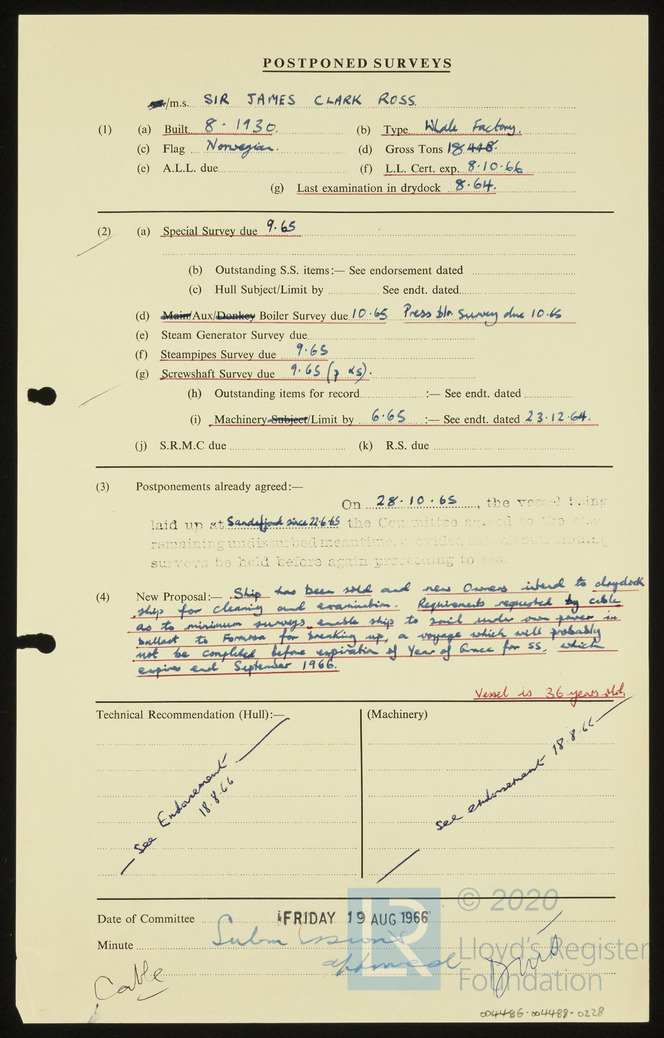 POSTPONED SURVEYS
/m.s. SIR JAMES CLARK ROSS
(1) (a) Built 8.1930. (b) Type Whale Factory.
(c) Flag Norwegian. (d) Gross Tons 18448.
(e) A.L.L. due (f) L.L. Cert. exp. 8.10.66
(g) Last examination in drydock 8.64.
(2) (a) Special Survey due 9.65
(b) Outstanding S.S. items:— See endorsement dated
(c) Hull Subject/Limit by See endt. dated
(d) Main/Aux/Donkey Boiler Survey due 10.65 Press blr survey due 10.65
(e) Steam Generator Survey due
(f) Steampipes Survey due 9.65
(g) Screwshaft Survey due 9.65 (p &s).
(h) Outstanding items for record :— See endt. dated
(i) Machinery Subject/Limit by 6.65 :— See endt. dated 23.12.64.
(j) S.R.M.C due (k) R.S. due
(3) Postponements already agreed:—
On 28.10.65, the vessel being
laid up at Sandefjord since 22.6.65 the Committee agreed to the
remaining undisturbed meantime, provided
surveys be held before again proceeding to sea.
(4) New Proposal:— Ship has been sold and new Owners intend to drydock
ship for cleaning and examination. Requirements requested by cable
as to minimum surveys enable ship to sail under own power in
ballast to Formosa for breaking up, a voyage which will probably
not be completed before expiration of Year of Grace for SS, which
expires end September 1966.
Vessel is 36 years old.
Technical Recommendation (Hull):— (Machinery)
See Endorsement
18.8.66
See endorsement 18.8.66
Date of Committee FRIDAY 19 AUG 1966
Minute
approved
Cable
LR
© 2020
Lloyd's Register
Foundation
004486-004488-0228